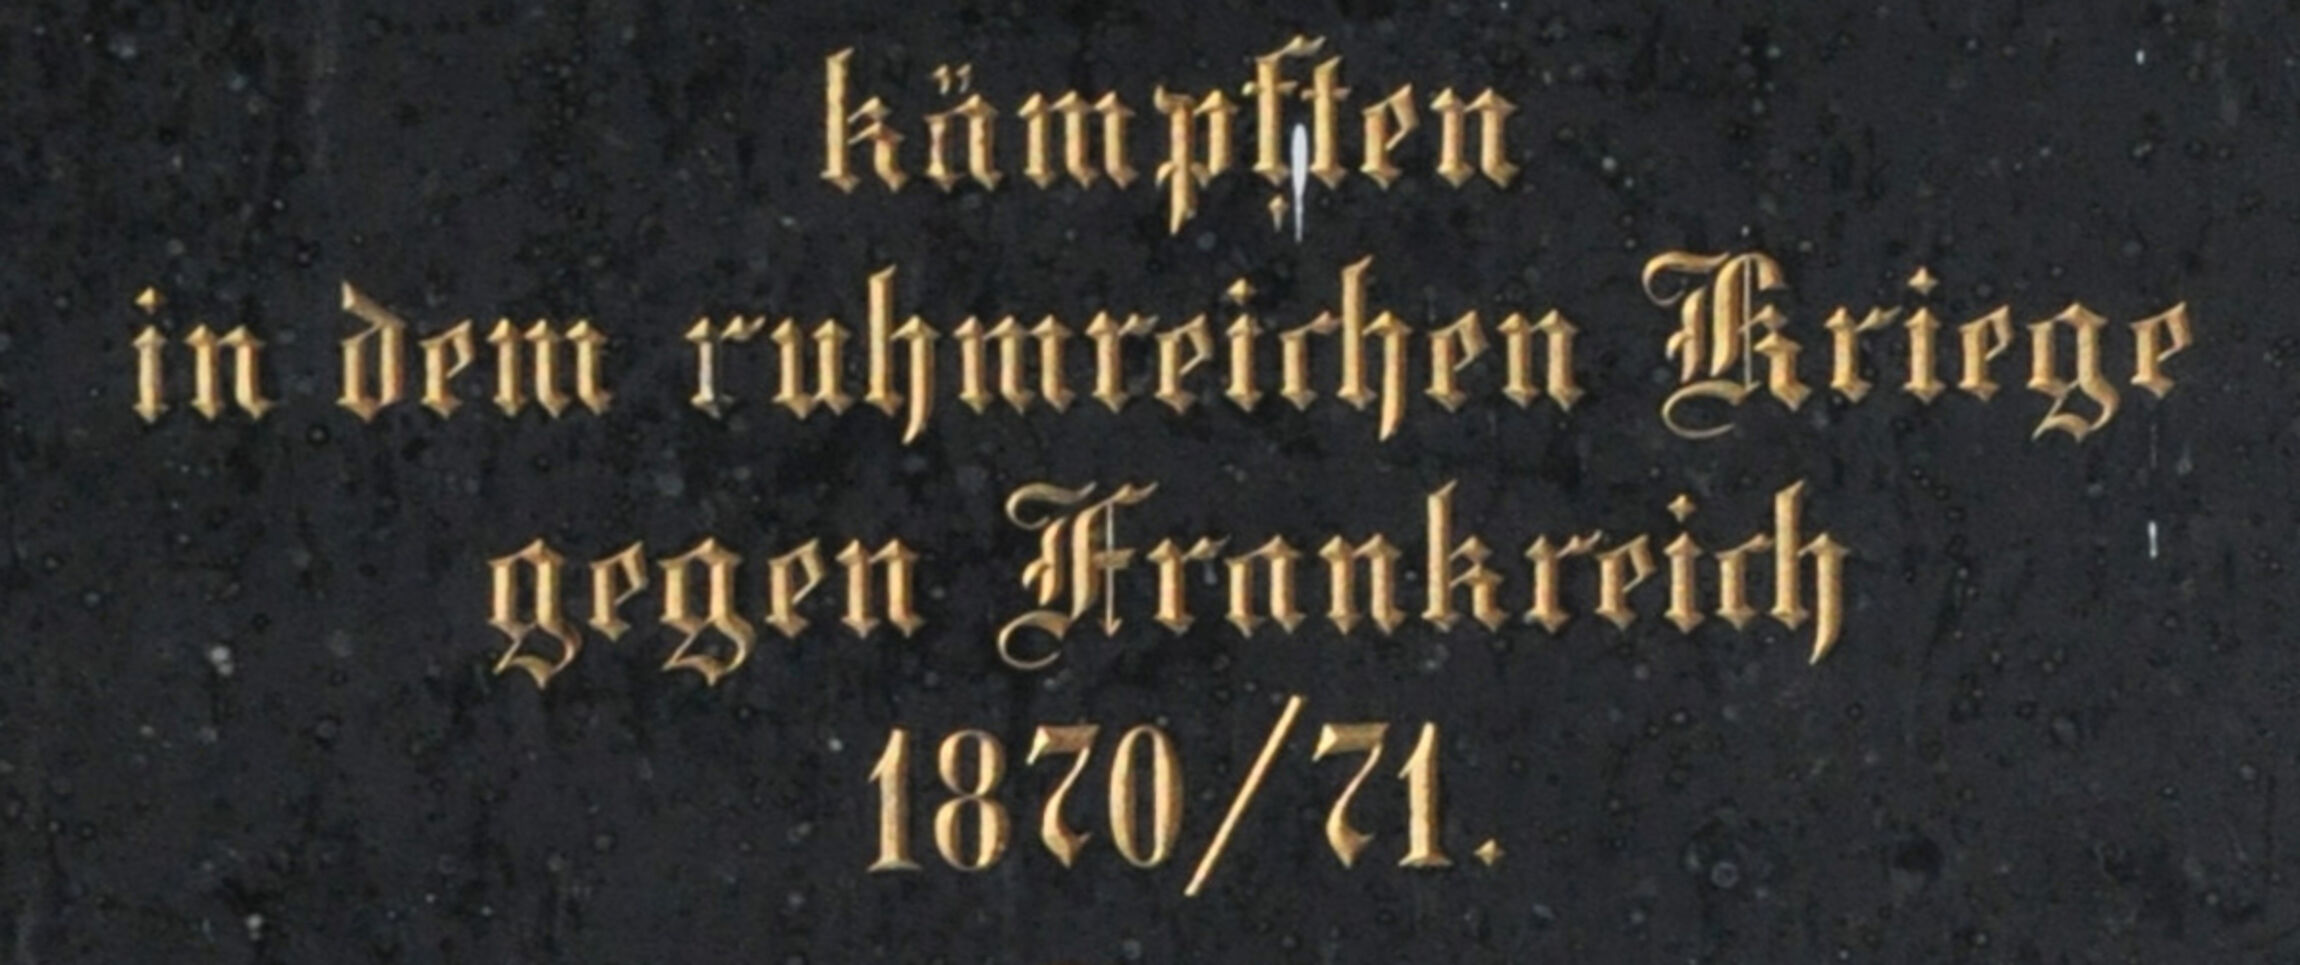 kämpften
in dem ruhmreichen Kriege
gegen Frankreich
1870/71.